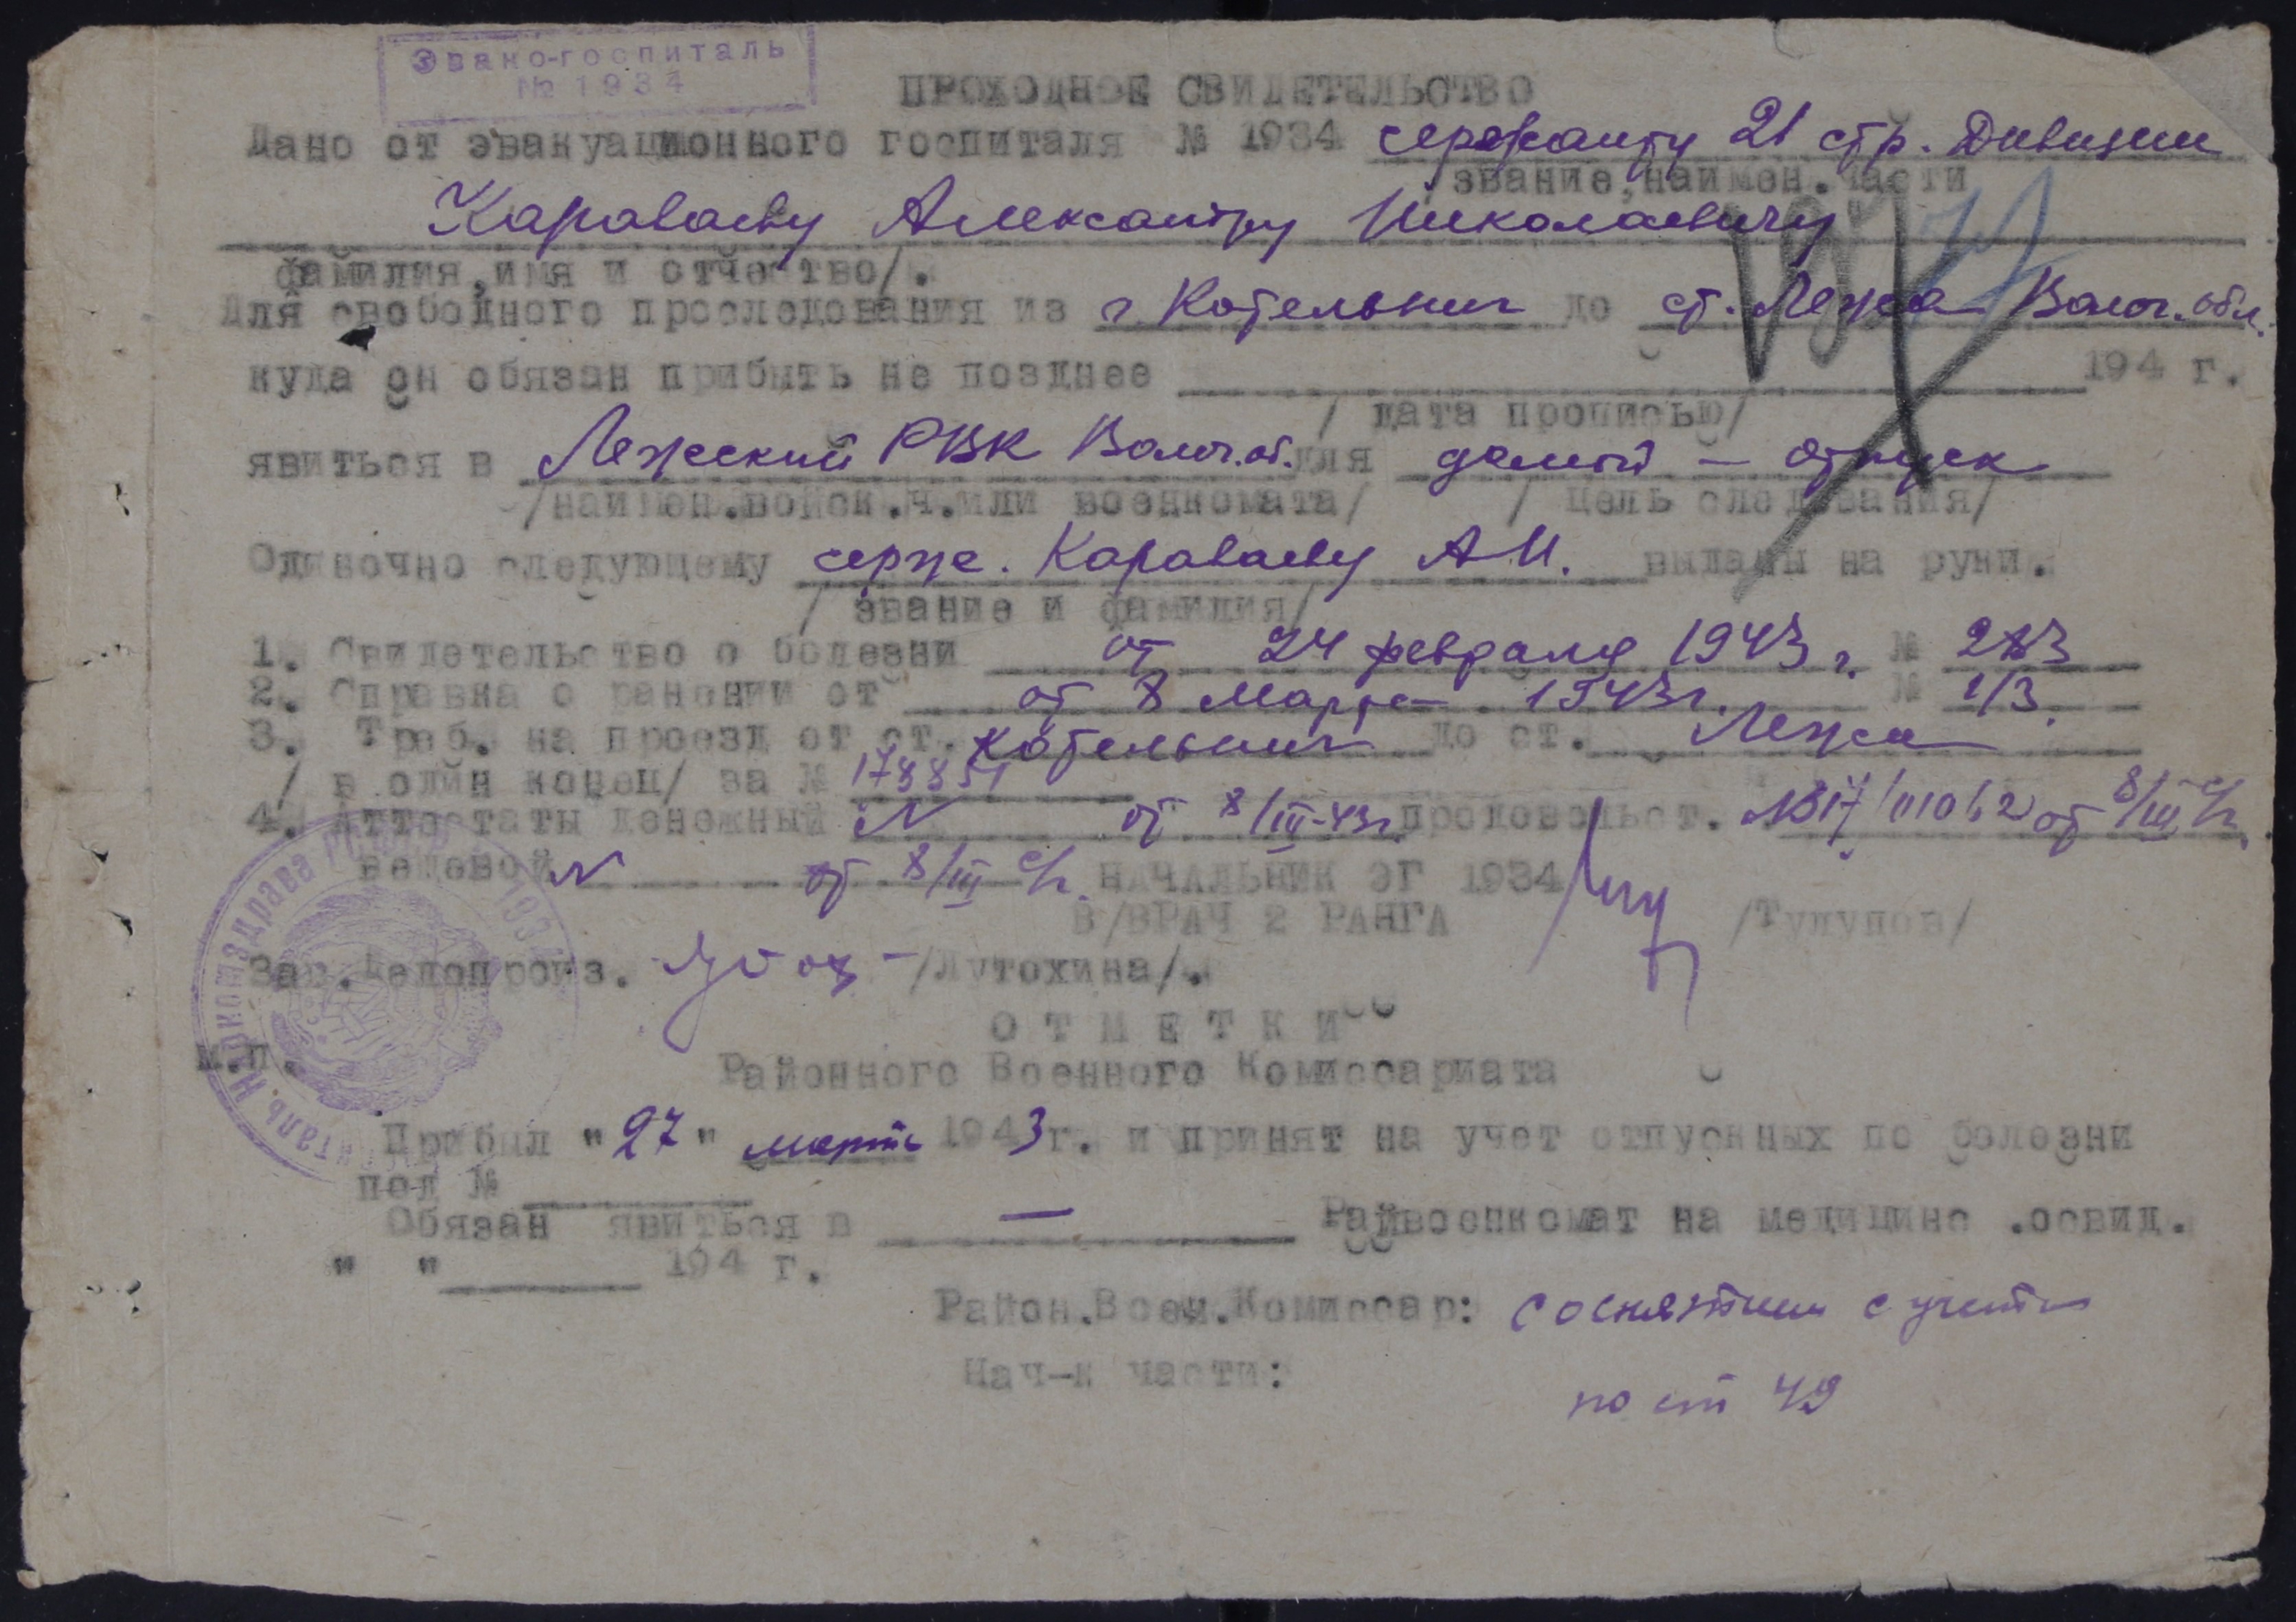 Эвако-госпиталь
№ 1934
ПРОХОДНОЕ СВИДЕТЕЛЬСТВО
Дано от эвакуационного госпиталя № 1934 сержанту 21 стр. Дивизии
звание, наимен. части
Караваеву Александру Николаевичу
фамилия, имя и отчество/.
Для свободного проследования из г. Котельнич до ст. Лежа Волог. обл.
куда он обязан прибыть не позднее 194 г.
/ дата прописью/
явиться в Лежский РВК Волог. об. для домой – отпуск
/наимен. войск. ч. или военкомата/ / цель следования/
Одиночно следующему серж. Караваеву А.Н. выданы на руки.
/ звание и фамилия/
1. Свидетельство о болезни от 24 февраля 1943 г. № 283
2. Справка о ранении от от 8 Марта 1943г. № 1/3.
3. Треб. на проезд от ст. Котельнич до ст. Лежа
/ в один конец/ за № 178851
4. Аттестаты денежный N от 8/III-43г. продовольст. от 8/III с/г.
вещевой N от 8/III с/г. НАЧАЛЬНИК ЭГ 1934
В/ВРАЧ 2 РАНГА /Тулупов/
Зав. Делопроиз. /Лутохина/.
ОТМЕТКИ
м.п.
Районного Военного Комиссариата
Прибыл "27" марта 1943 г. и принят на учет отпускных по болезни
под №
Обязан явиться в — Райвоенкомат на медицинс .освид.
" " 194 г.
Район.Воен.Комиссар: со снятием с учета
Нач-к части: по ст 49